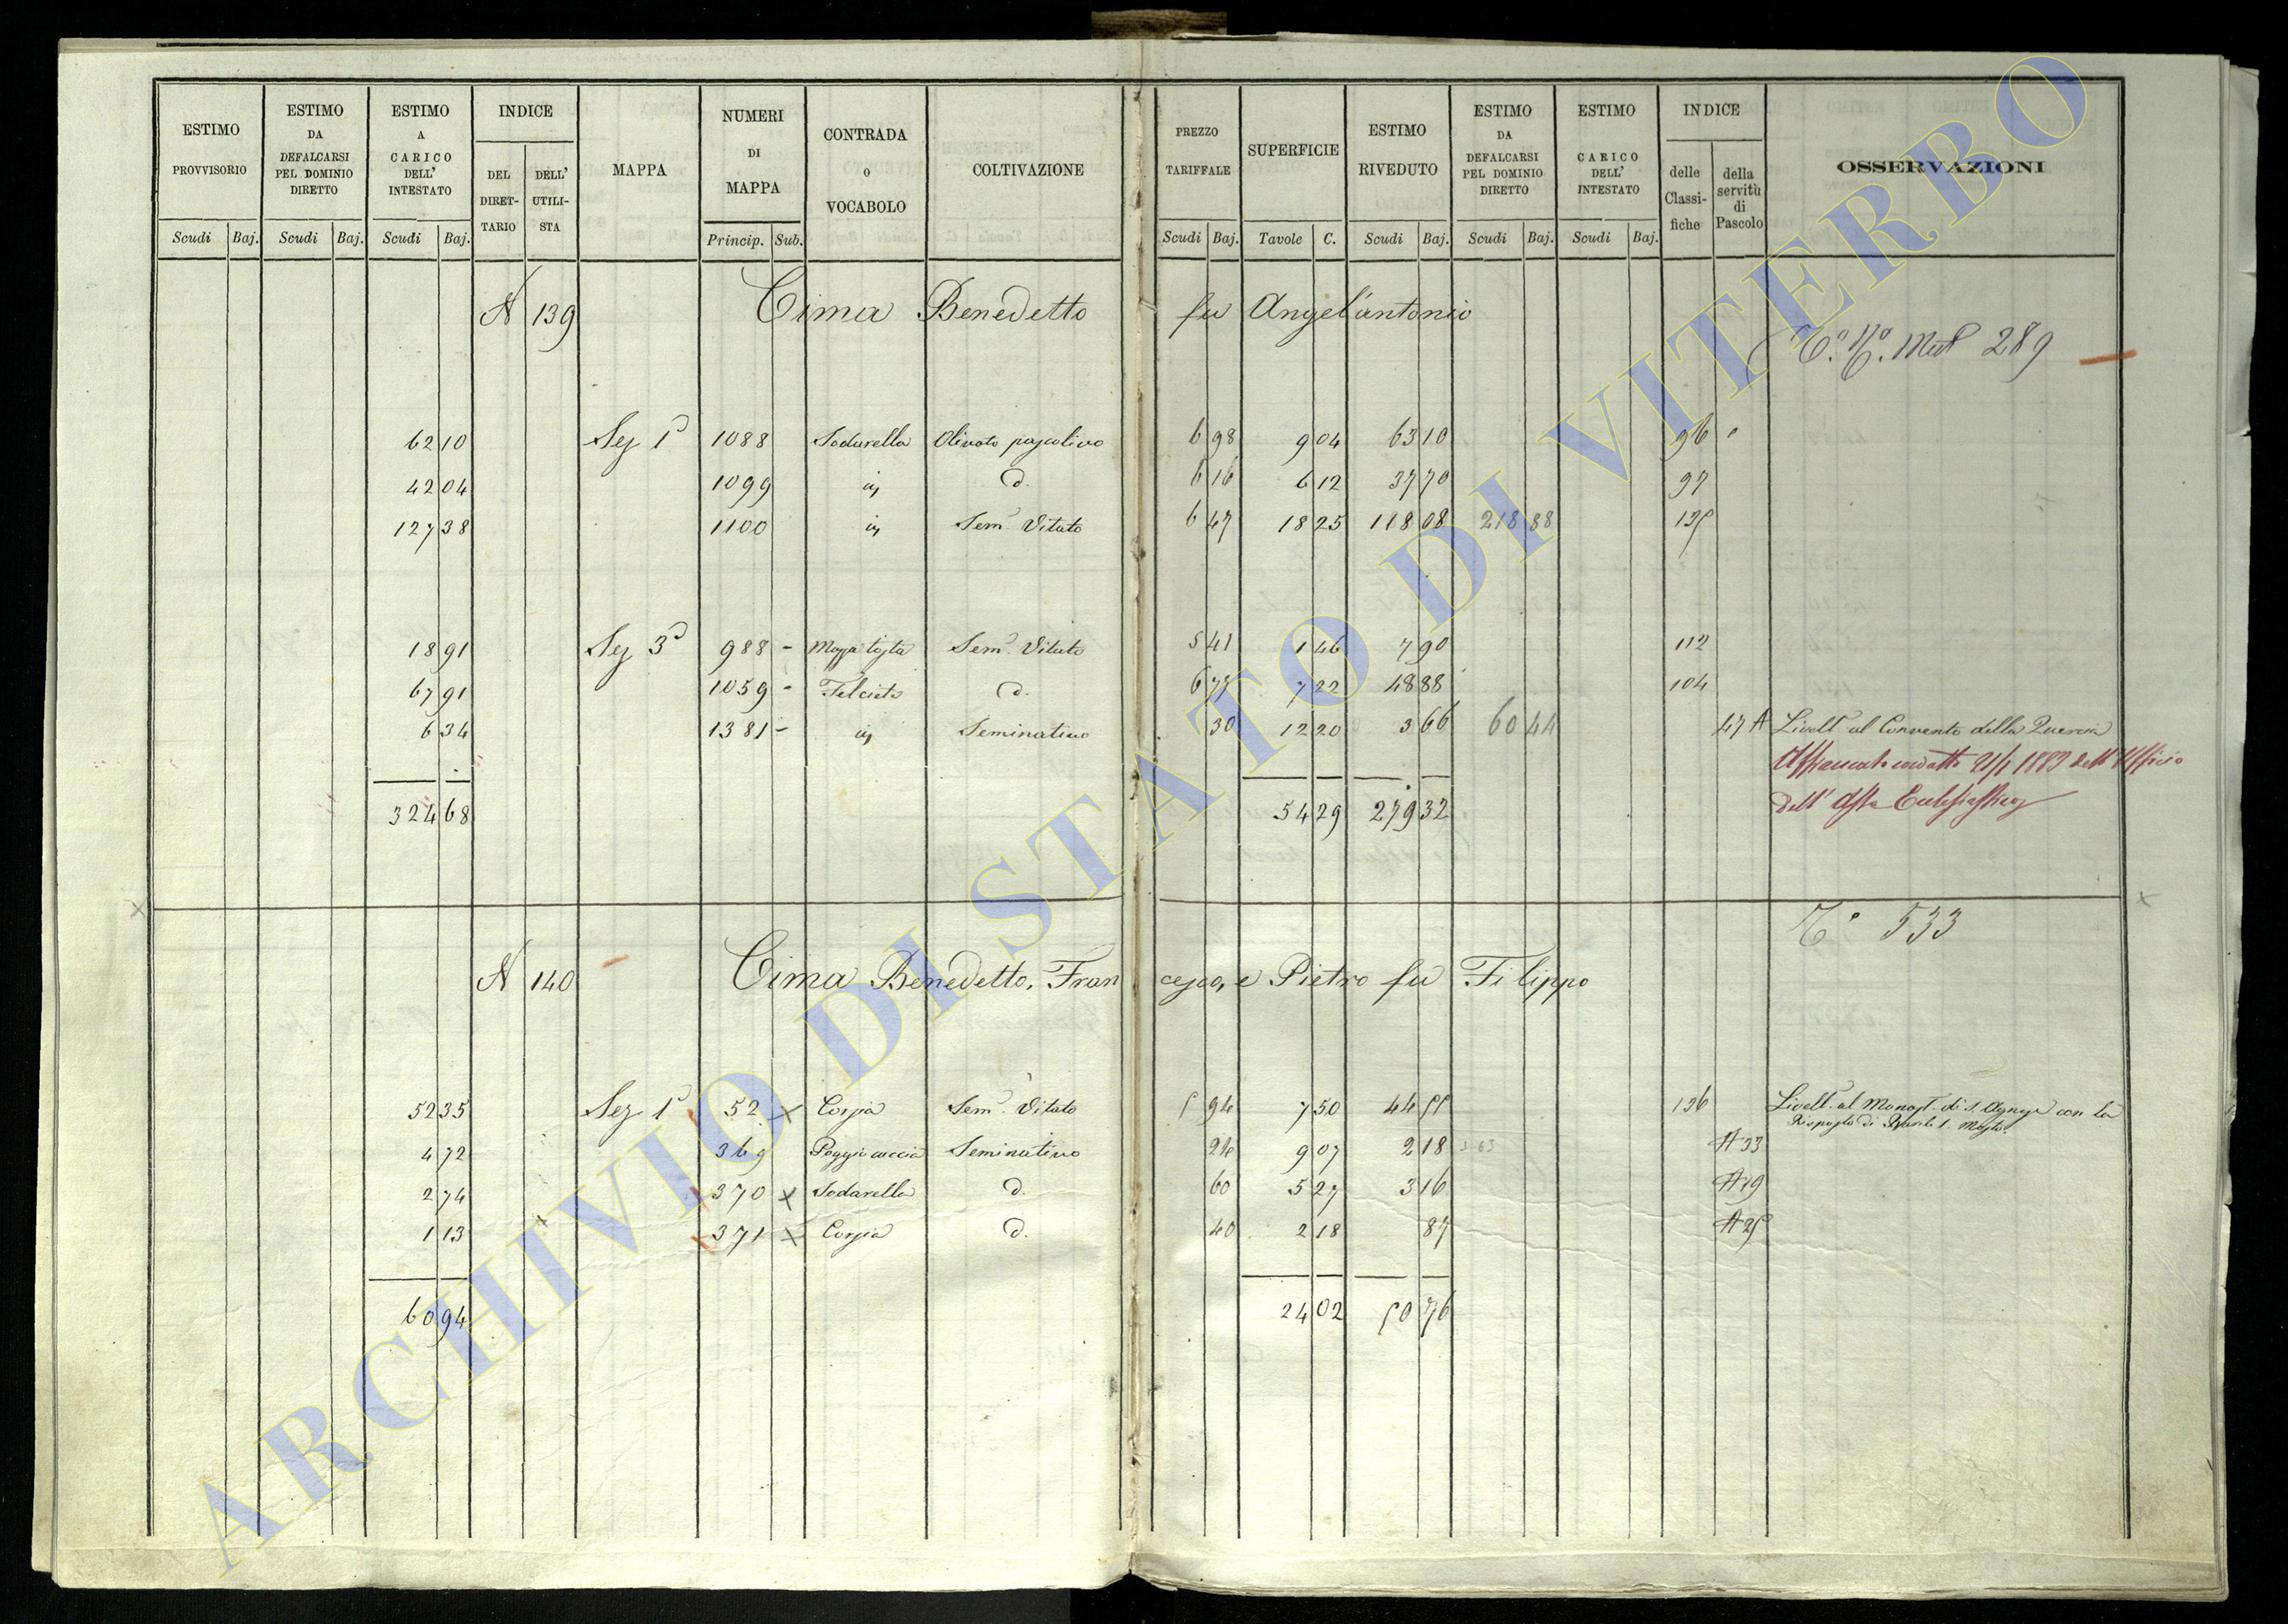 ESTIMO PROVVISORIO
ESTIMO DA DEFALCARSI PEL DOMINIO DIRETTO
ESTIMO A CARICO DELL' INTESTATO
INDICE
DEL DIRETTARIO
DELL' UTILISTA
MAPPA
NUMERI DI MAPPA
CONTRADA o VOCABOLO
COLTIVAZIONE
PREZZO TARIFFALE
SUPERFICIE
ESTIMO RIVEDUTO
ESTIMO DA DEFALCARSI PEL DOMINIO DIRETTO
ESTIMO A CARICO DELL' INTESTATO
INDICE
delle Classifiche
della servitù di Pascolo
OSSERVAZIONI
Scudi Baj. Scudi Baj. Scudi Baj. Princip. Sub. Scudi Baj. Tavole C. Scudi Baj. Scudi Baj. Scudi Baj.
N 139 Cima Benedetto fu Angel'antonio
289
62 10 Sez 1ª 1088 Sodarella Olivato pascolivo 6 98 9 04 63 10 96
42 04 1099 id. 6 16 6 12 37 70 97
127 38 1100 id. Sem.º Vitato 6 47 18 25 118 08 218 88 135
18 91 Sez 3ª 988 - Sem.º Vitato 5 41 1 46 7 90 112
67 91 1059 - Felceto d. 6 77 7 22 48 88 104
6 34 1381 - id. Seminativo 30 12 20 3 66 60 44 47 A Livell.º al Convento della Quercia
Affrancato con atto 21/1 1883 dell'Ufficio
dell'
324 68 54 29 279 32
N.º 533
N 140 Cima Benedetto, Francesco, e Pietro fu Filippo
52 35 Sez 1ª 52 x Corpia Sem.º Vitato 5 94 7 50 44 55 136 Livell. al Monast. di S. Agnese con la
Risposta di
4 72 369 Poggio caccia Seminativo 24 9 07 2 18 3 63 A 33
2 74 370 x Sodarella d. 60 5 27 3 16 A 19
1 13 371 x Corpia d. 40 2 18 87 A 25
60 94 24 02 50 76
ARCHIVIO DI STATO DI VITERBO